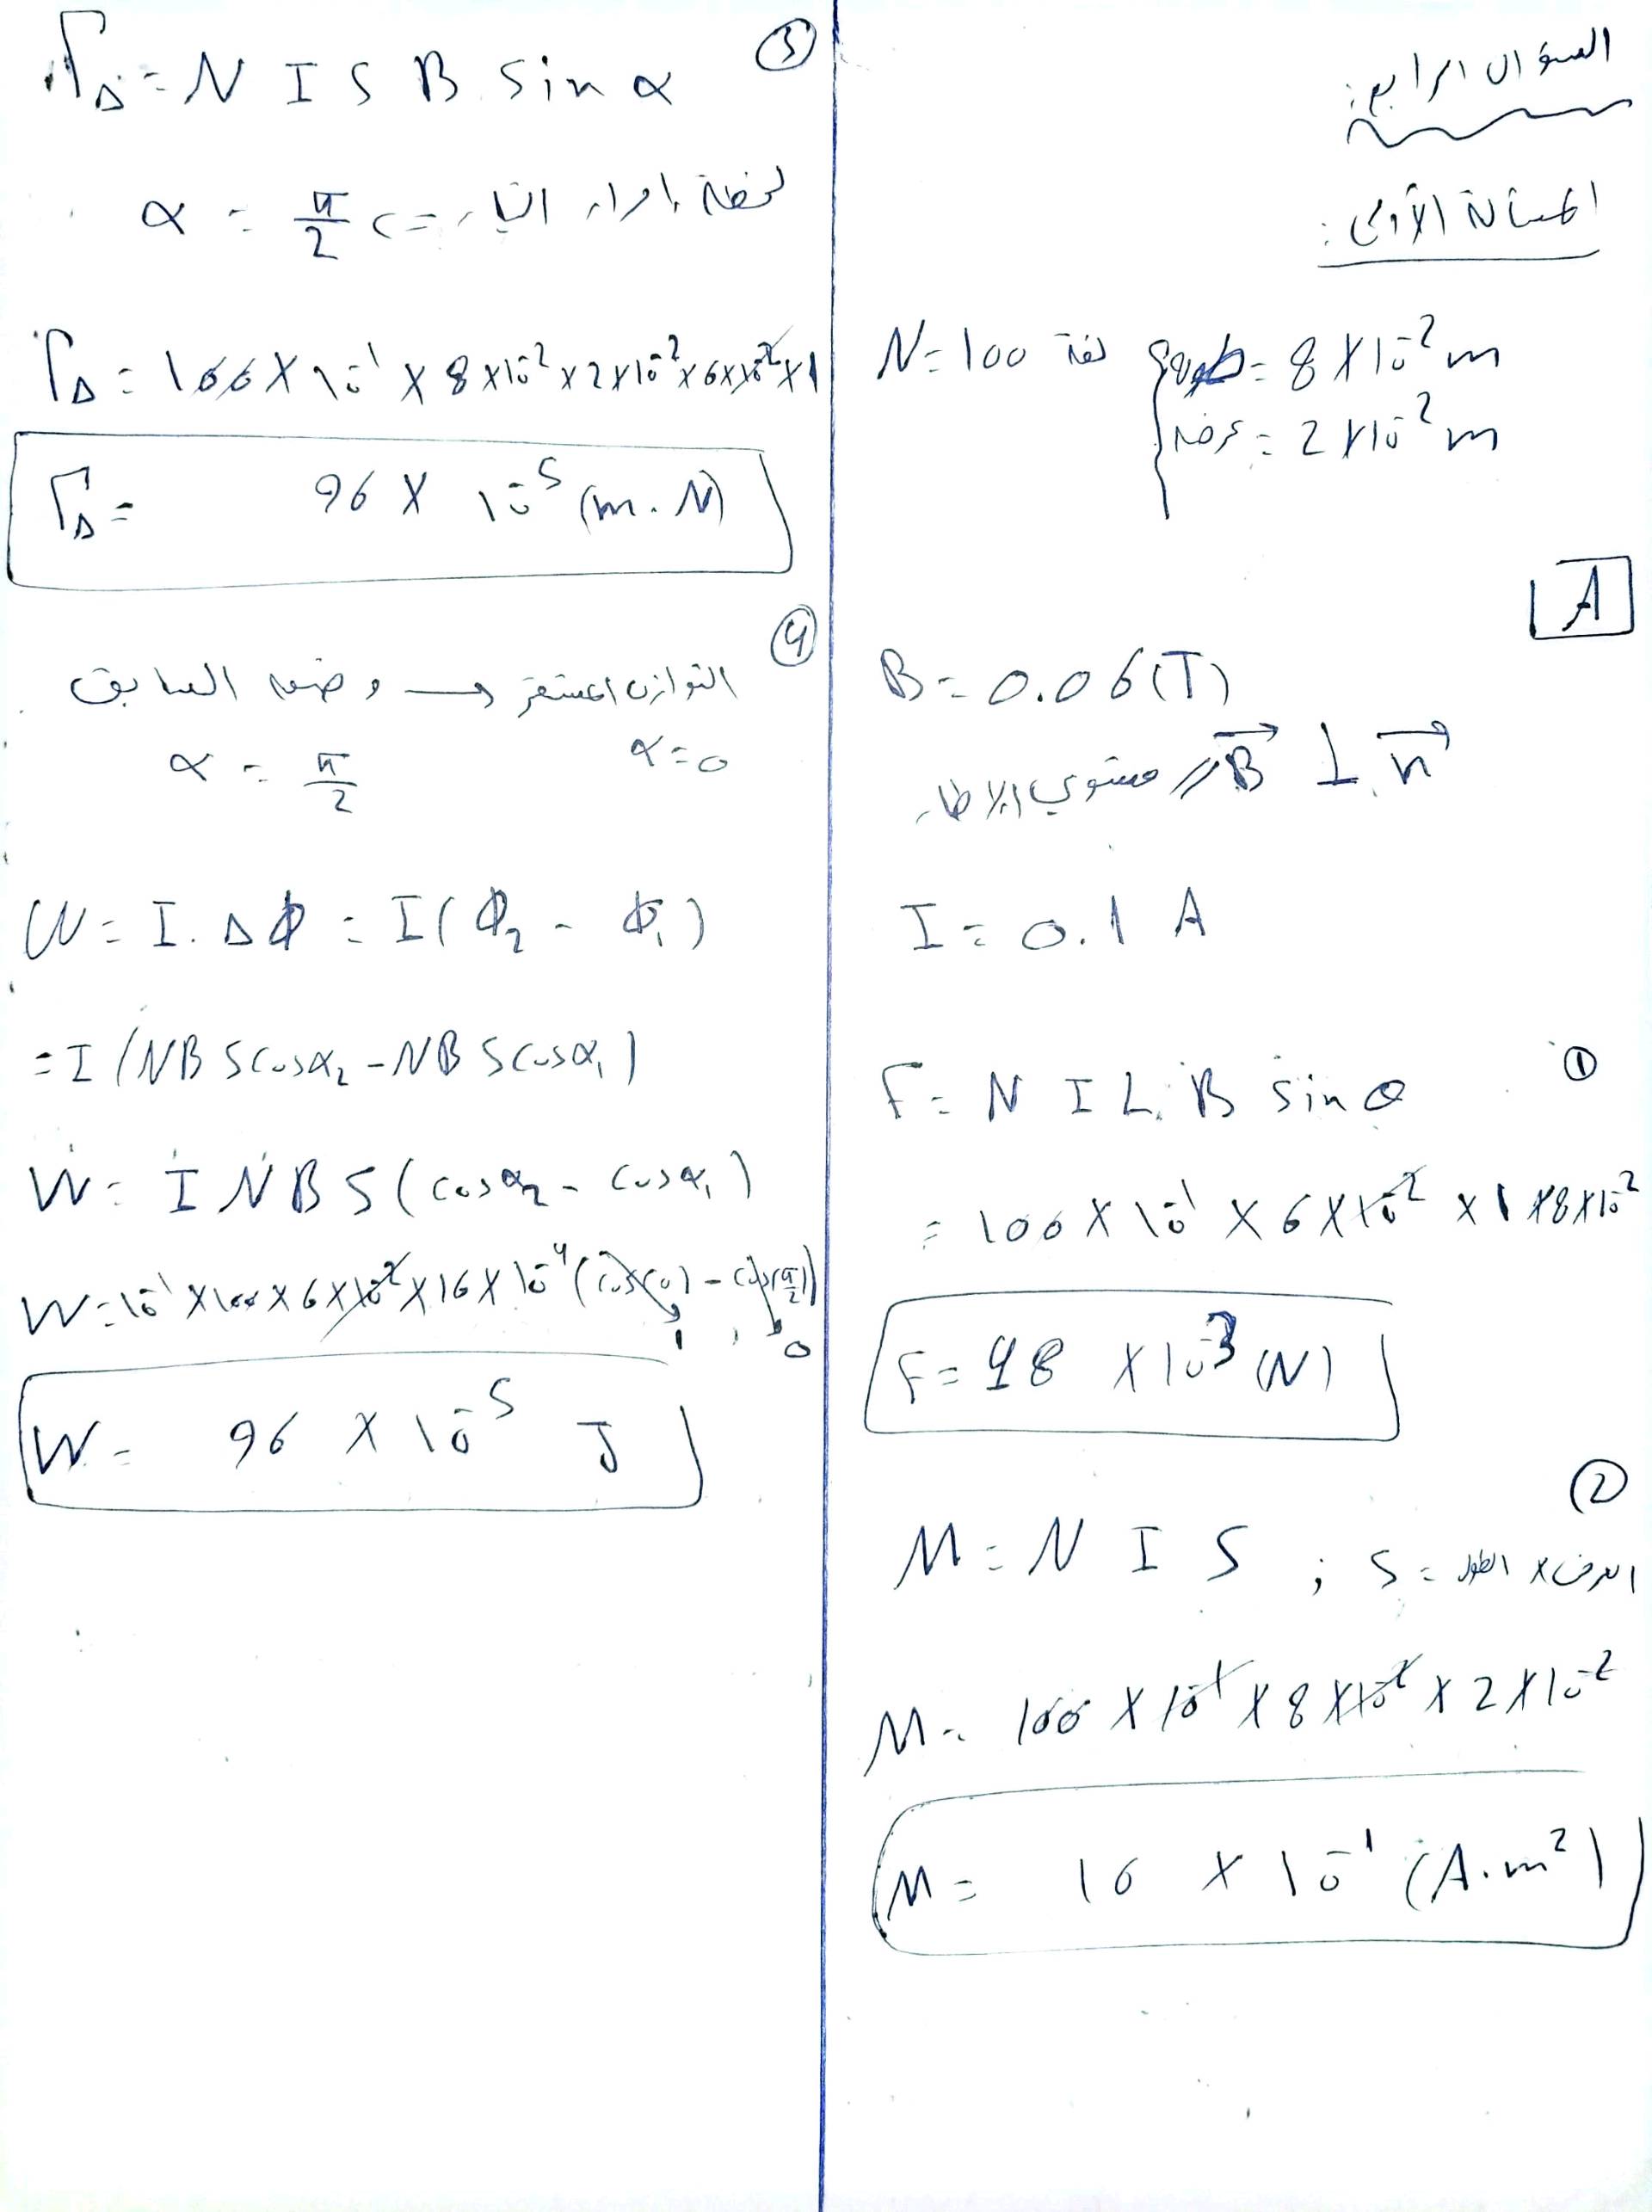 السؤال الرابع:
المسألة الأولى:
N = 100 لفة طوله = 8 × 10^-2 m
عرضه = 2 × 10^-2 m
A
B = 0.06 (T)
n ⊥ B // مستوي الإطار
I = 0.1 A
①
F = N I L B sin θ
= 100 × 10^-1 × 6 × 10^-2 × 1 × 8 × 10^-2
F = 48 × 10^-3 (N)
②
M = N I S ; S = الطول × العرض
M = 100 × 10^-1 × 8 × 10^-2 × 2 × 10^-2
M = 16 × 10^-1 (A.m²)
③
Γ_Δ = N I S B sin α
لحظة إمرار التيار => α = π/2
Γ_Δ = 100 × 10^-1 × 8 × 10^-2 × 2 × 10^-2 × 6 × 10^-2 × 1
Γ_Δ = 96 × 10^-5 (m.N)
④
التوازن المستقر ← وضعه السابق
α = 0 α = π/2
W = I . ΔΦ = I (Φ₂ - Φ₁)
= I (NBS cos α₂ - NBS cos α₁)
W = I N B S (cos α₂ - cos α₁)
W = 10^-1 × 100 × 6 × 10^-2 × 16 × 10^-4 (cos(0) - cos(π/2))
1 , 0
W = 96 × 10^-5 J